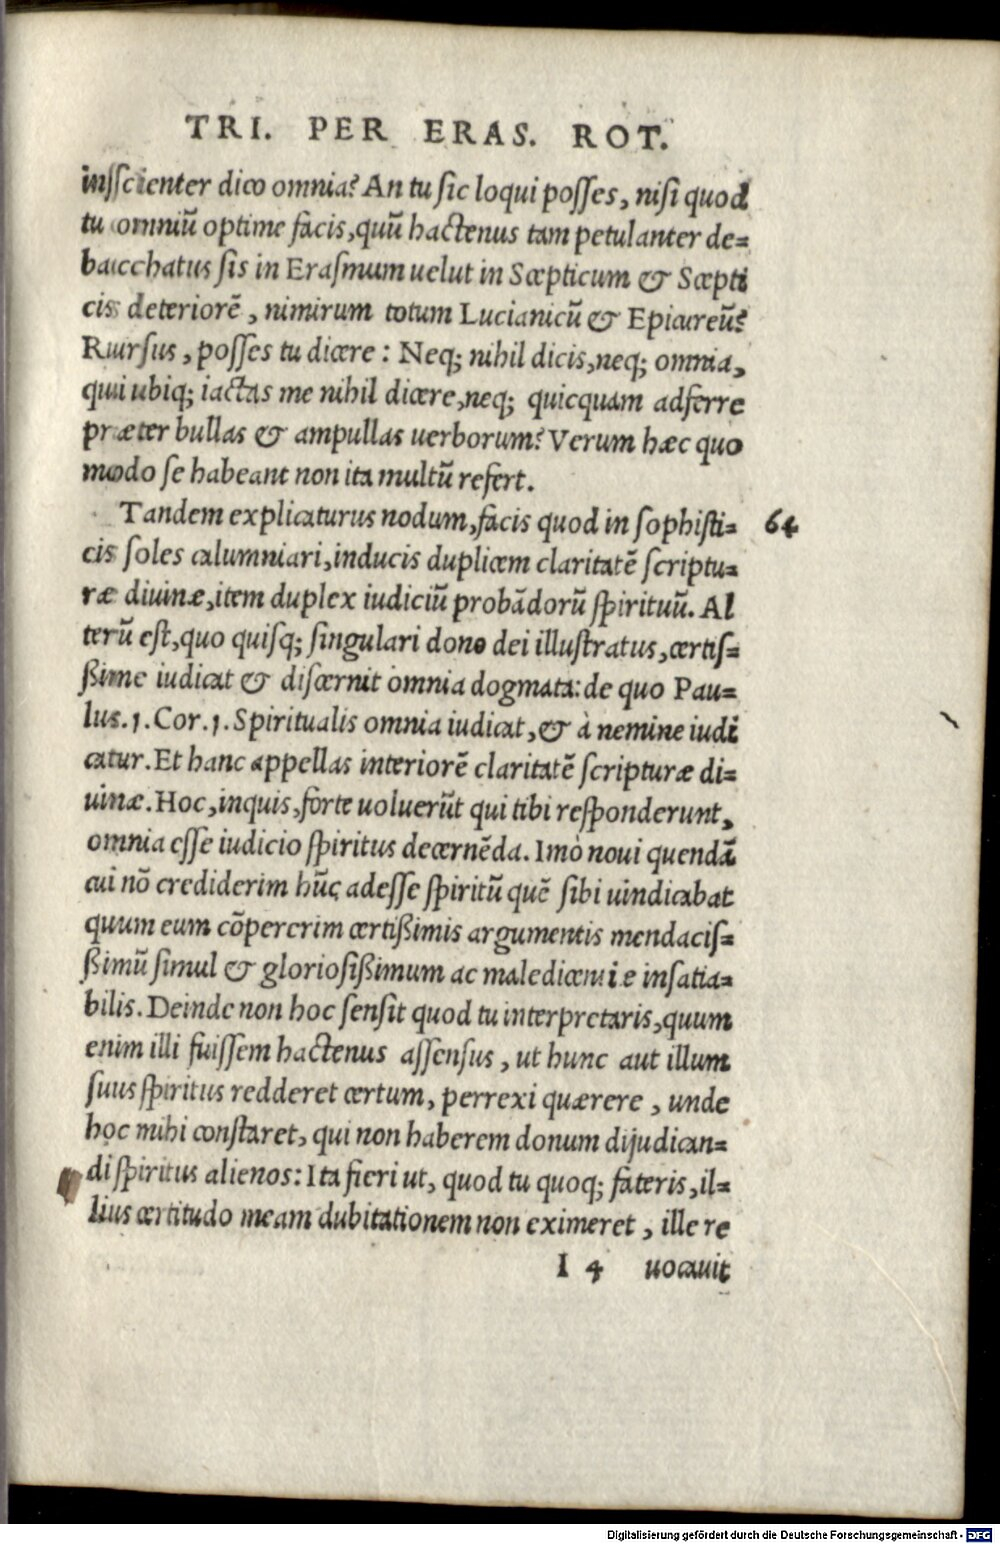 TRI. PER ERAS. ROT.
inſſcienter dico omnia? An tu ſic loqui poſſes, niſi quod
tu omniũ optime facis, quũ hactenus tam petulanter de=
bacchatus ſis in Eraſmum uelut in Scepticum & Scepti
cis deteriorẽ, nimirum totum Lucianicũ & Epicureũ?
Rurſus, poſſes tu dicere: Neq; nihil dicis, neq; omnia,
qui ubiq; iactas me nihil dicere, neq; quicquam adferre
præter bullas & ampullas uerborum? Verum hæc quo
modo ſe habeant non ita multũ refert.
Tandem explicaturus nodum, facis quod in ſophiſti= 64
cis ſoles calumniari, inducis duplicem claritatẽ ſcriptu=
ræ diuinæ, item duplex iudiciũ probãdorũ ſpirituũ. Al
terũ eſt, quo quiſq; ſingulari dono dei illuſtratus, certiſ=
ßime iudicat & diſcernit omnia dogmata: de quo Pau=
lus. 1. Cor. 1. Spiritualis omnia iudicat, & à nemine iudi
catur. Et hanc appellas interiorẽ claritatẽ ſcripturæ di=
uinæ. Hoc, inquis, forte uoluerũt qui tibi reſponderunt,
omnia eſſe iudicio ſpiritus decernẽda. Imò noui quendã
cui nõ crediderim hũc adeſſe ſpiritũ quẽ ſibi uindicabat
quum eum cõpererim certißimis argumentis mendaciſ=
ßimũ ſimul & glorioſißimum ac maledicentie inſatia=
bilis. Deinde non hoc ſenſit quod tu interpretaris, quum
enim illi fuiſſem hactenus aſſenſus, ut hunc aut illum
ſuus ſpiritus redderet certum, perrexi quærere, unde
hoc mihi conſtaret, qui non haberem donum dijudican=
di ſpiritus alienos: Ita fieri ut, quod tu quoq; fateris, il=
lius certitudo meam dubitationem non eximeret, ille re
I 4 uocauit
Digitalisierung gefördert durch die Deutsche Forschungsgemeinschaft - DFG